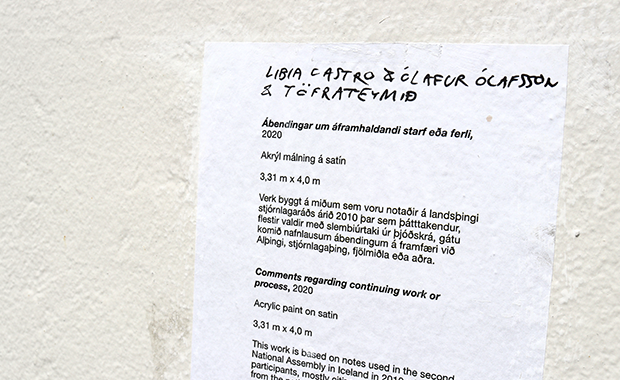 LIBIA CASTRO & ÓLAFUR ÓLAFSSON
& TÖFRATEYMIÐ
Ábendingar um áframhaldandi starf eða ferli,
2020
Akrýl málning á satín
3,31 m x 4,0 m
Verk byggt á miðum sem voru notaðir á landsþingi
stjórnlagaráðs árið 2010 þar sem þátttakendur,
flestir valdir með slembiúrtaki úr þjóðskrá, gátu
komið nafnlausum ábendingum á framfæri við
Alþingi, stjórnlagaþing, fjölmiðla eða aðra.
Comments regarding continuing work or
process, 2020
Acrylic paint on satin
3,31 m x 4,0 m
This work is based on notes used in the second
National Assembly in Iceland in 2010
participants, mostly
from the